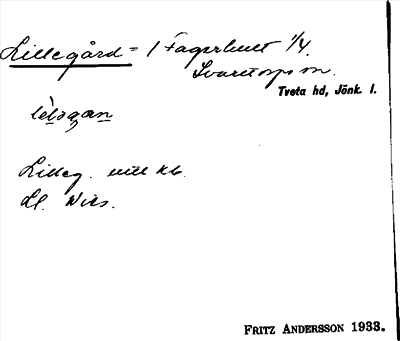 Lillegård = 1 Fagerhult 1/4.
Svarttorps sn.
Tveta hd, Jönk. l.
Lilleg. utt kb.
Ll. Nils.
FRITZ ANDERSSON 1933.